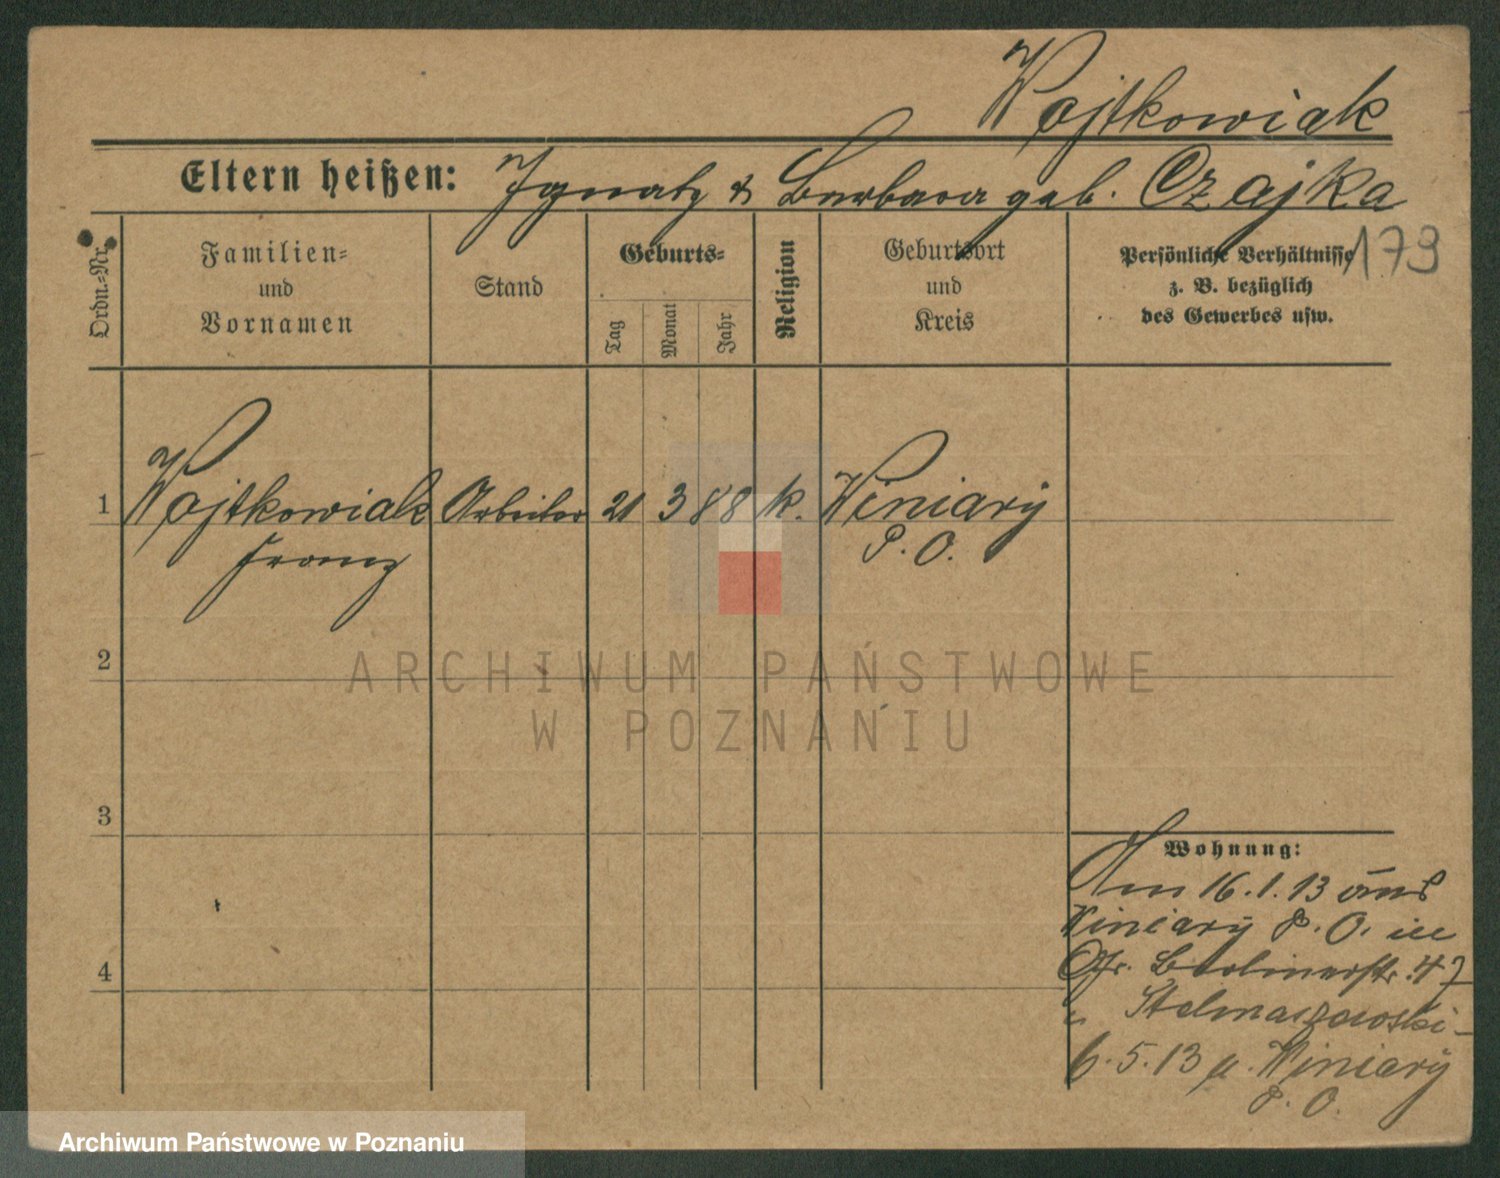 Wojtkowiak
Eltern heißen: Ignatz & Barbara geb. Czajka
179
Ordn.=Nr.
Familien=
und
Vornamen
Stand
Geburts=
Tag
Monat
Jahr
Religion
Geburtsort
und
Kreis
Persönliche Verhältnisse
z. B. bezüglich
des Gewerbes usw.
1 Wojtkowiak Arbeiter 21 3 88 k. Winiary
Franz P. O.
2
3
4
Wohnung:
Am 16.1.13 aus
Winiary P. O. in
Berlinerstr. 47
Stelmaszewski
6.5.13 n. Winiary
P. O.
ARCHIWUM PAŃSTWOWE
W POZNANIU
Archiwum Państwowe w Poznaniu